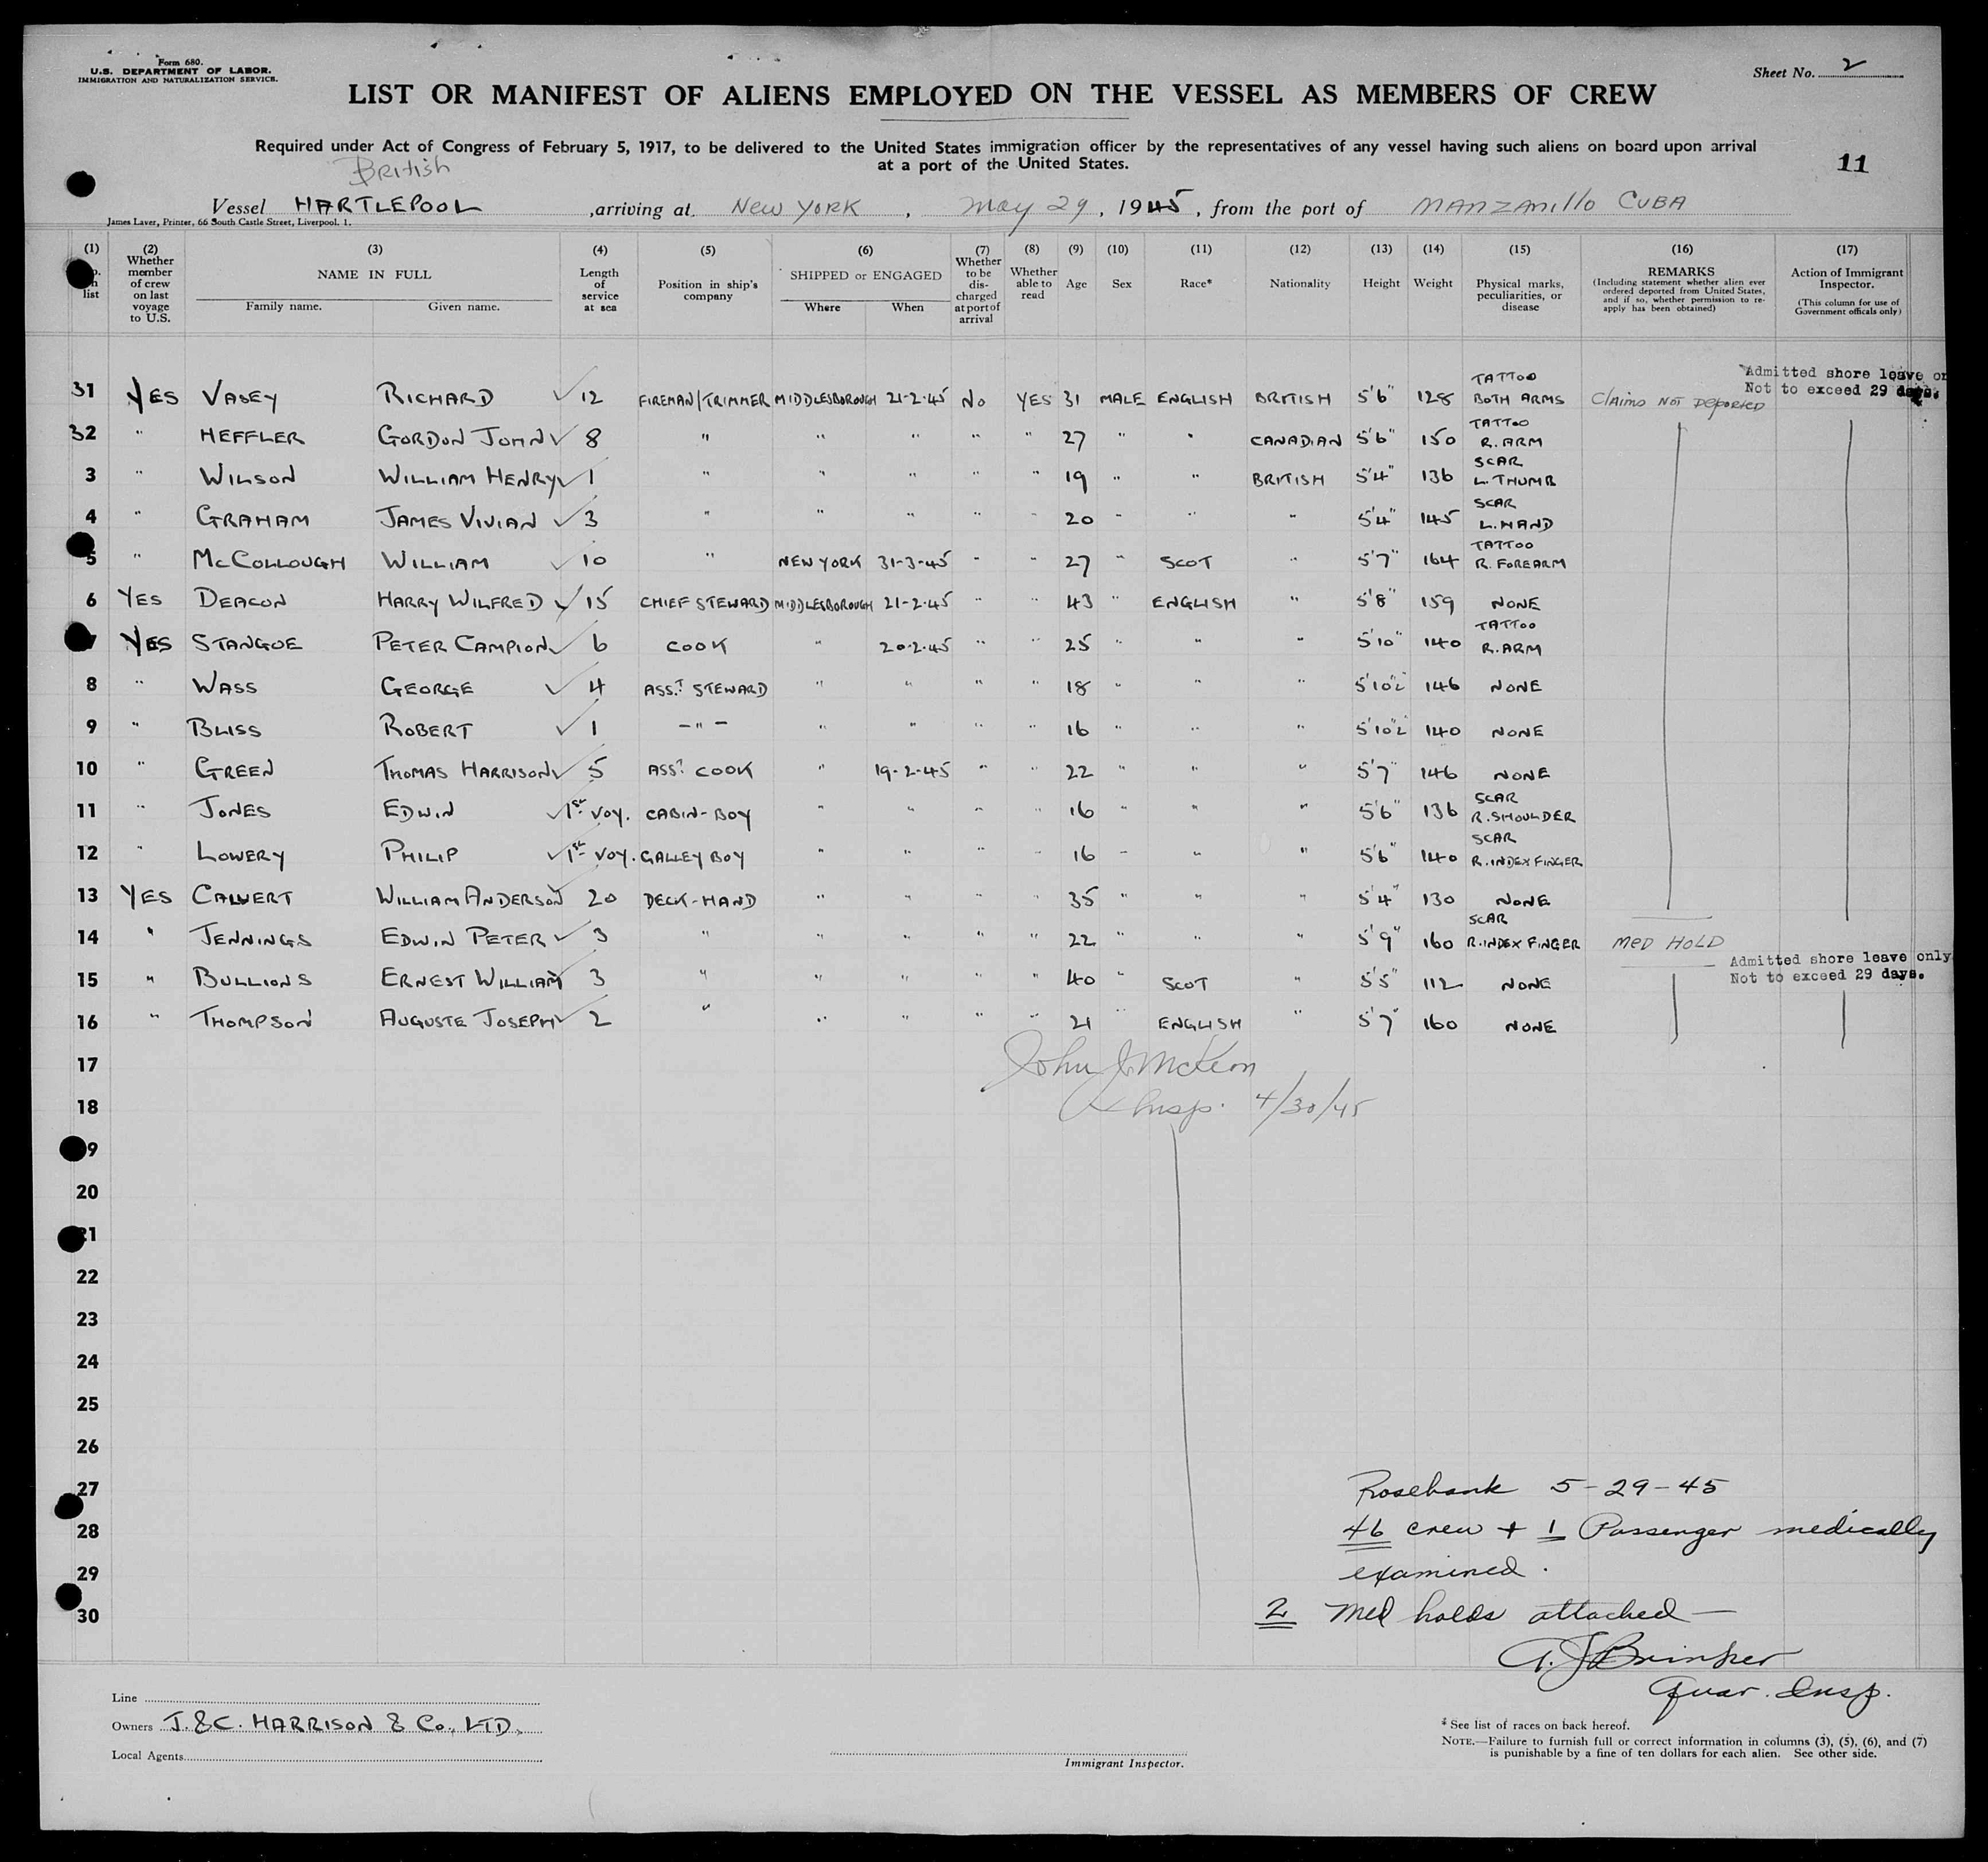 Form 680.
U.S. DEPARTMENT OF LABOR.
IMMIGRATION AND NATURALIZATION SERVICE.
Sheet No. 2
LIST OR MANIFEST OF ALIENS EMPLOYED ON THE VESSEL AS MEMBERS OF CREW
Required under Act of Congress of February 5, 1917, to be delivered to the United States immigration officer by the representatives of any vessel having such aliens on board upon arrival
at a port of the United States.
11
British
Vessel HARTLEPOOL ,arriving at New York , May 29, 1945, from the port of Manzanillo Cuba
James Laver, Printer, 66 South Castle Street, Liverpool. 1.
(1) (2) (3) (4) (5) (6) (7) (8) (9) (10) (11) (12) (13) (14) (15) (16) (17)
list
Whether member of crew on last voyage to U.S.
NAME IN FULL
Family name. Given name.
Length of service at sea
Position in ship's company
SHIPPED or ENGAGED
Where When
Whether to be discharged at port of arrival
Whether able to read
Age Sex Race* Nationality Height Weight
Physical marks, peculiarities, or disease
REMARKS
(Including statement whether alien ever ordered deported from United States, and if so, whether permission to re-apply has been obtained)
Action of Immigrant Inspector.
(This column for use of Government officals only)
Admitted shore leave or
Not to exceed 29 days.
31 YES VASEY RICHARD ✓ 12 FIREMAN/TRIMMER MIDDLESBOROUGH 21-2-45 No YES 31 MALE ENGLISH BRITISH 5'6" 128 TATTOO BOTH ARMS Claims NOT Deported
32 " HEFFLER GORDON JOHN ✓ 8 " " " " " 27 " " CANADIAN 5'6" 150 TATTOO R. ARM
3 " WILSON WILLIAM HENRY ✓ 1 " " " " " 19 " " BRITISH 5'4" 136 SCAR L. THUMB
4 " GRAHAM JAMES VIVIAN ✓ 3 " " " " " 20 " " " 5'4" 145 SCAR L. HAND
5 " McCOLLOUGH WILLIAM ✓ 10 " NEW YORK 31-3-45 " " 27 " SCOT " 5'7" 164 TATTOO R. FOREARM
6 YES DEACON HARRY WILFRED ✓ 15 CHIEF STEWARD MIDDLESBOROUGH 21-2-45 " " 43 " ENGLISH " 5'8" 159 NONE
7 YES STANGOE PETER CAMPION ✓ 6 COOK " 20-2-45 " " 25 " " " 5'10" 140 TATTOO R. ARM
8 " WASS GEORGE ✓ 4 ASST. STEWARD " " " " 18 " " " 5'10" 146 NONE
9 " BLISS ROBERT ✓ 1 -"- " " " " 16 " " " 5'10" 140 NONE
10 " GREEN THOMAS HARRISON ✓ 5 ASST. COOK " 19-2-45 " " 22 " " " 5'7" 146 NONE
11 " JONES EDWIN ✓ 1st VOY. CABIN-BOY " " " " 16 " " " 5'6" 136 SCAR R. SHOULDER
12 " LOWERY PHILIP ✓ 1st VOY. GALLEY BOY " " " " 16 " " " 5'6" 140 SCAR R. INDEX FINGER
13 YES CALVERT WILLIAM ANDERSON 20 DECK-HAND " " " " 35 " " " 5'4" 130 NONE
14 " JENNINGS EDWIN PETER ✓ 3 " " " " " 22 " " " 5'9" 160 SCAR R. INDEX FINGER MED HOLD
Admitted shore leave only
Not to exceed 29 days.
15 " BULLIONS ERNEST WILLIAM 3 " " " " " 40 " SCOT " 5'5" 112 NONE
16 " THOMPSON AUGUSTE JOSEPH ✓ 2 " " " " " 21 " ENGLISH " 5'7" 160 NONE
17
John J McKeon
18
Insp. 4/30/45
19
20
21
22
23
24
25
26
27
Rosebank 5-29-45
28
46 crew + 1 Passenger medically
29
examined.
30
2 Med holds attached —
A. J. Brinker
Quar. Insp.
Line
Owners J. & C. HARRISON & Co., LTD.
Local Agents
Immigrant Inspector.
* See list of races on back hereof.
NOTE.—Failure to furnish full or correct information in columns (3), (5), (6), and (7)
is punishable by a fine of ten dollars for each alien. See other side.